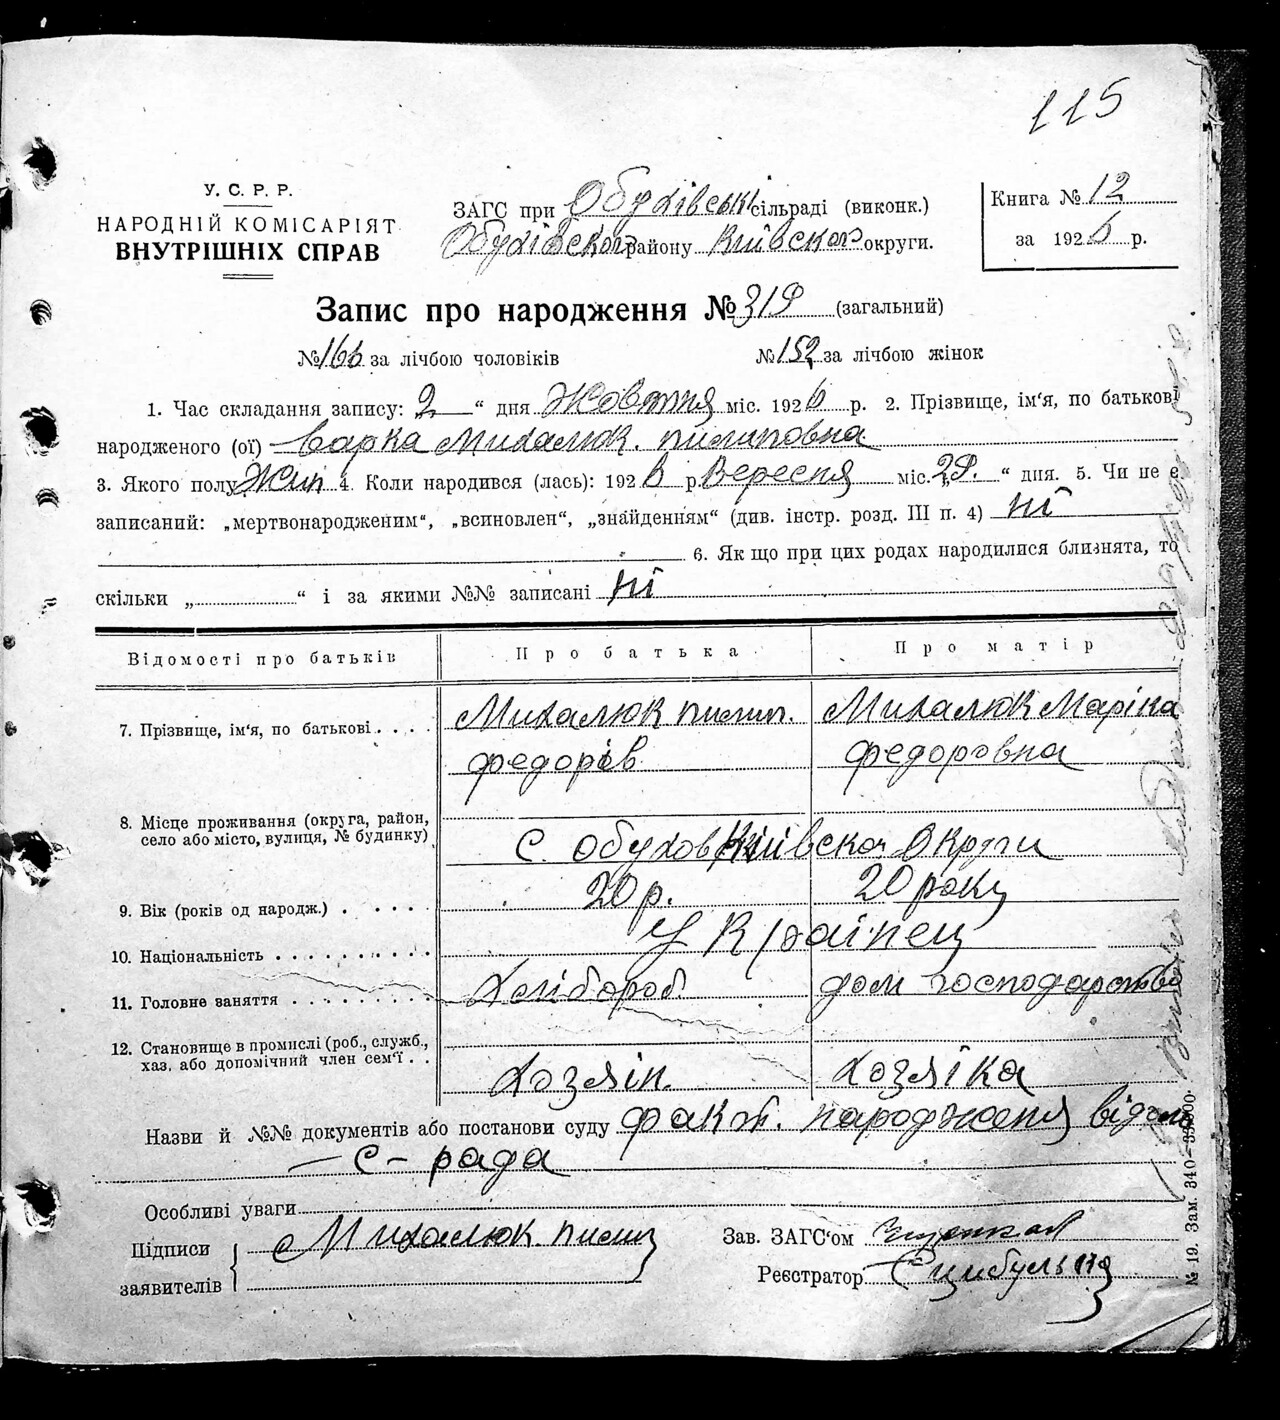 115
У. С. Р. Р.
НАРОДНІЙ КОМІСАРІЯТ
ВНУТРІШНІХ СПРАВ
ЗАГС при Обухівські сільраді (виконк.)
Обухівского району Київского округи.
Книга № 12
за 1926 р.
Запис про народження № 319 (загальний)
№ 166 за лічбою чоловіків № 152 за лічбою жінок
1. Час складання запису: 2 “ дня Жовтня міс. 1926 р. 2. Прізвище, ім'я, по батькові
народженого (ої) Варка Михалюк. пилиповна
3. Якого полу Жин 4. Коли народився (лась): 1926 р. Вересня міс. „29.“ дня. 5. Чи не є
записаний: „мертвонародженим“, „всиновлен“, „знайденням“ (див. інстр. розд. III п. 4) ні
6. Як що при цих родах народилися близнята, то
скільки „ “ і за якими №№ записані ні
Відомості про батьків Про батька Про матір
7. Прізвище, ім'я, по батькові Михалюк пилип. Михалюк Маріка
федорів федоровна
8. Місце проживання (округа, район,
село або місто, вулиця, № будинку) С. Обухов Київскоі Округи
9. Вік (років од народж.) 20 р. 20 року
10. Національність Украінец
11. Головне заняття Хлібороб. дом господарство
12. Становище в промислі (роб., служб.,
хаз. або допомічний член сем'ї Хозяін. Хозяіка
Назви й №№ документів або постанови суду факт. народженя відомо
— с – рада
Особливі уваги
Підписи
заявителів
Михалюк пилип
Зав. ЗАГС'ом
Реєстратор Цибульня
№ 19. Зам. 340–39000.